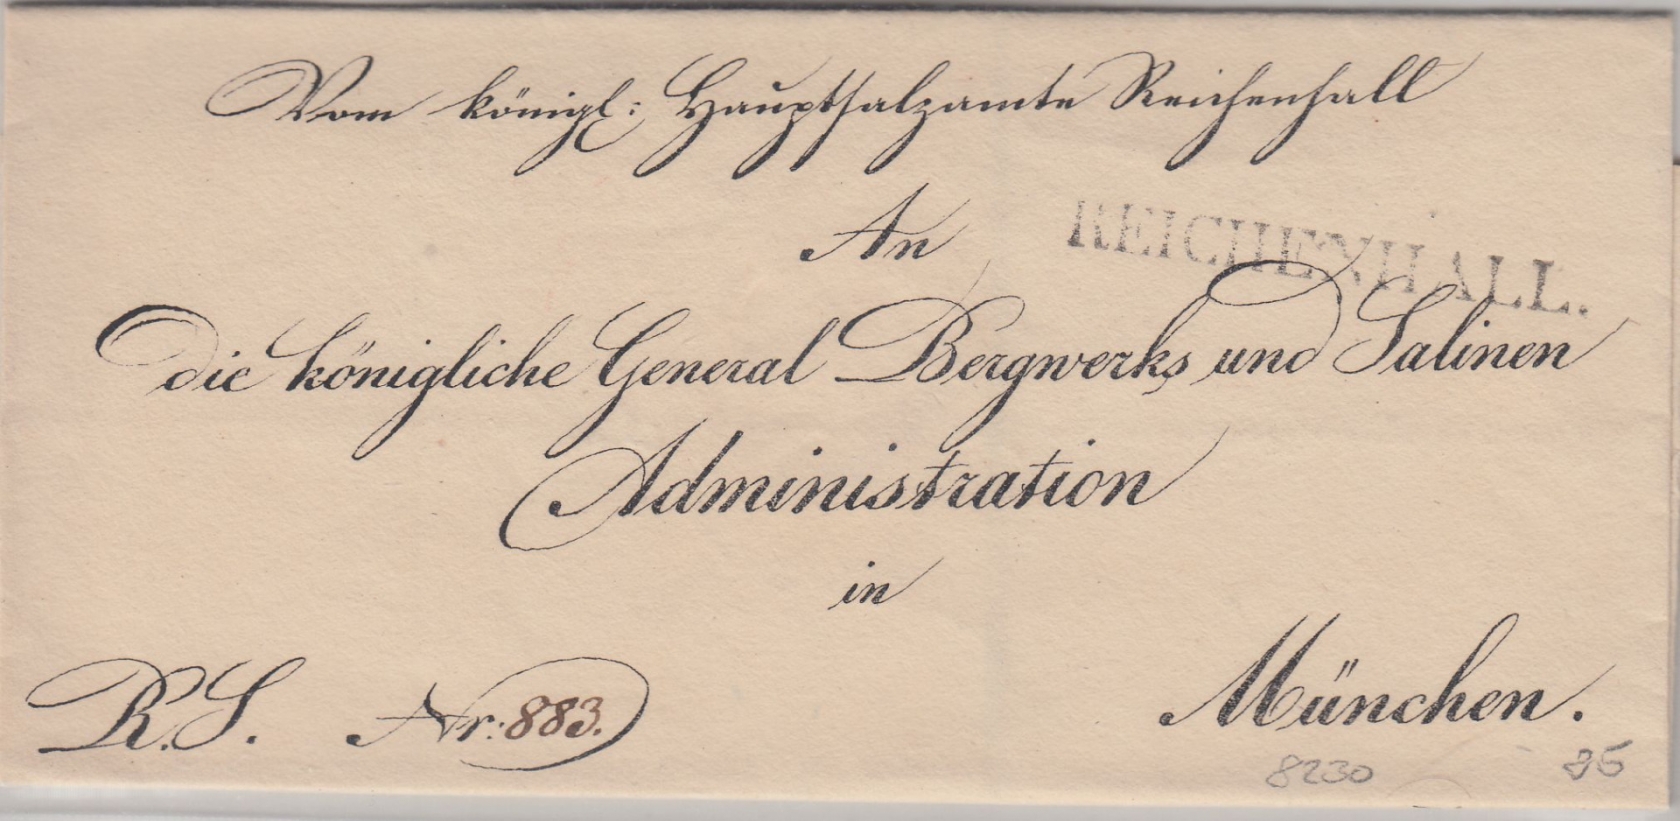 Vom königl: Hauptsalzamte Reichenhall
An
REICHENHALL.
die königliche General Bergwerks und Salinen
Administration
in
München.
R. S. Nr: 883.
8230